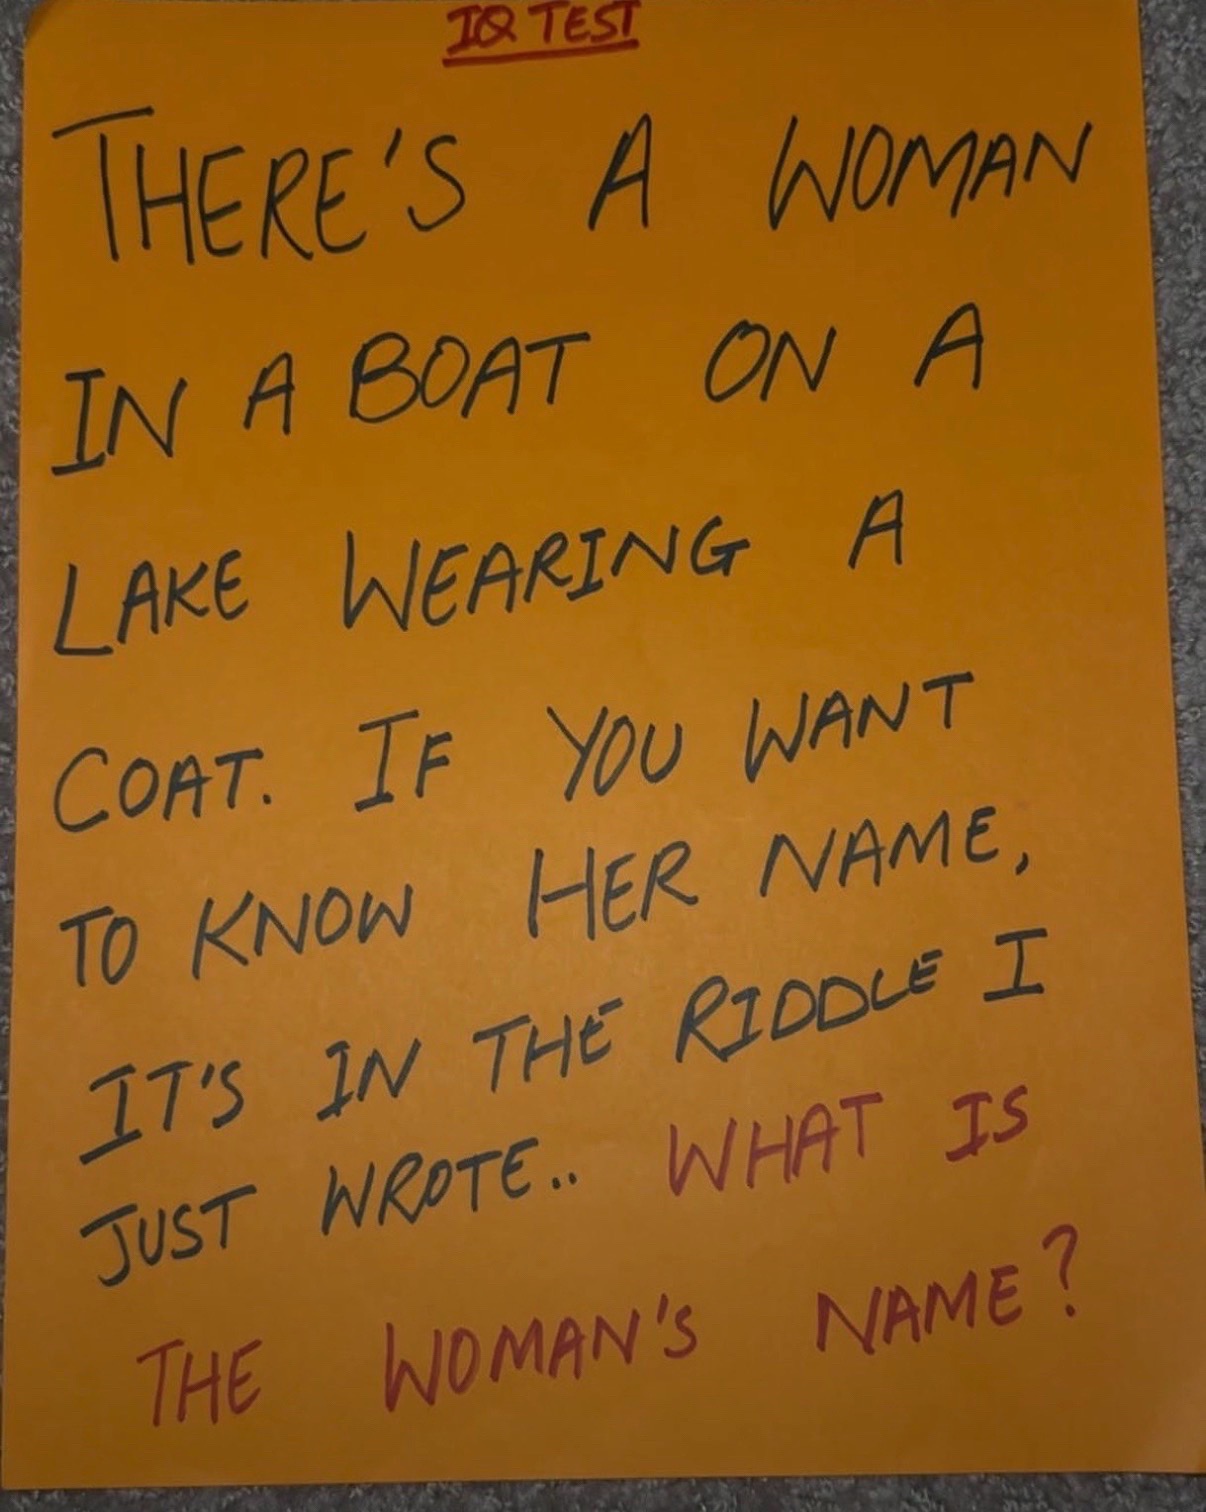 IQ TEST
THERE'S A WOMAN
IN A BOAT ON A
LAKE WEARING A
COAT. IF YOU WANT
TO KNOW HER NAME,
IT'S IN THE RIDDLE I
JUST WROTE.. WHAT IS
THE WOMAN'S NAME?